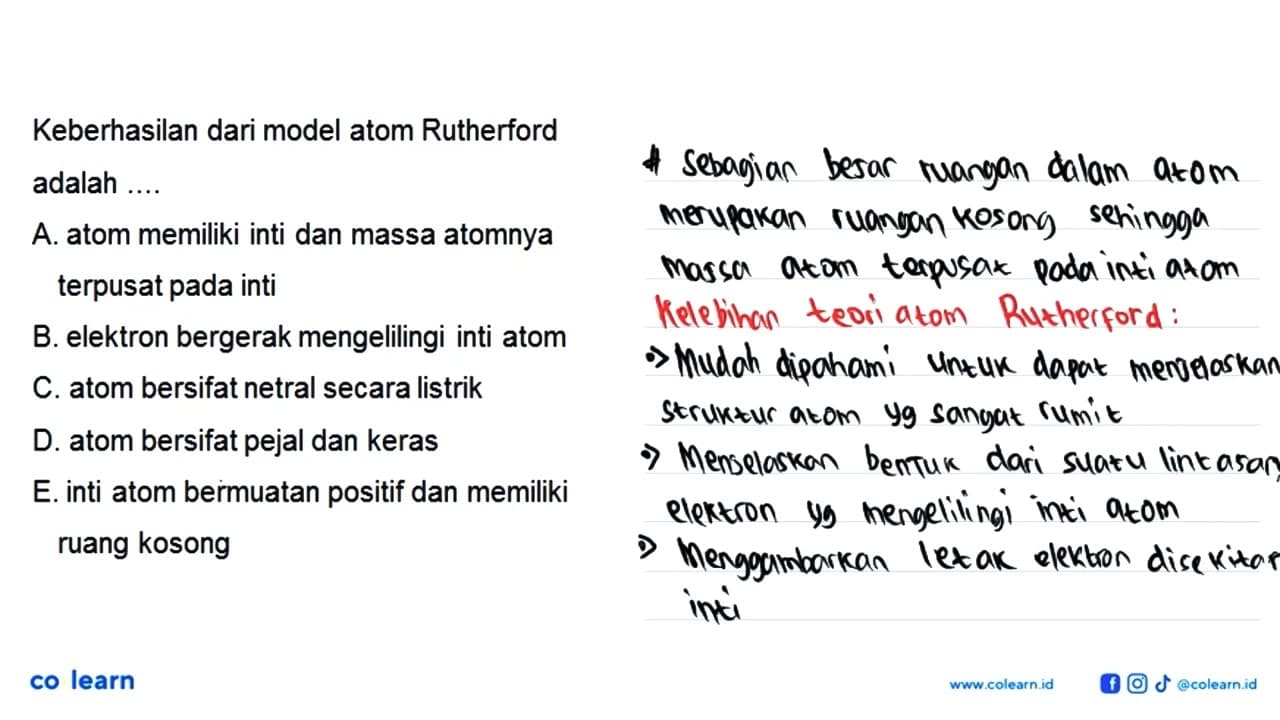 Keberhasilan dari model atom Rutherford
adalah ....
A. atom memiliki inti dan massa atomnya
terpusat pada inti
B. elektron bergerak mengelilingi inti atom
C. atom bersifat netral secara listrik
D. atom bersifat pejal dan keras
E. inti atom bermuatan positif dan memiliki
ruang kosong
# Sebagian besar ruangan dalam atom
merupakan ruangan kosong sehingga
massa atom terpusat pada inti atom
Kelebihan teori atom Rutherford :
•> Mudah dipahami untuk dapat menjelaskan
struktur atom yg sangat rumit
•> Menjelaskan bentuk dari suatu lintasan
elektron yg mengelilingi inti atom
•> Menggambarkan letak elektron disekitar
inti
co learn
www.colearn.id
@colearn.id